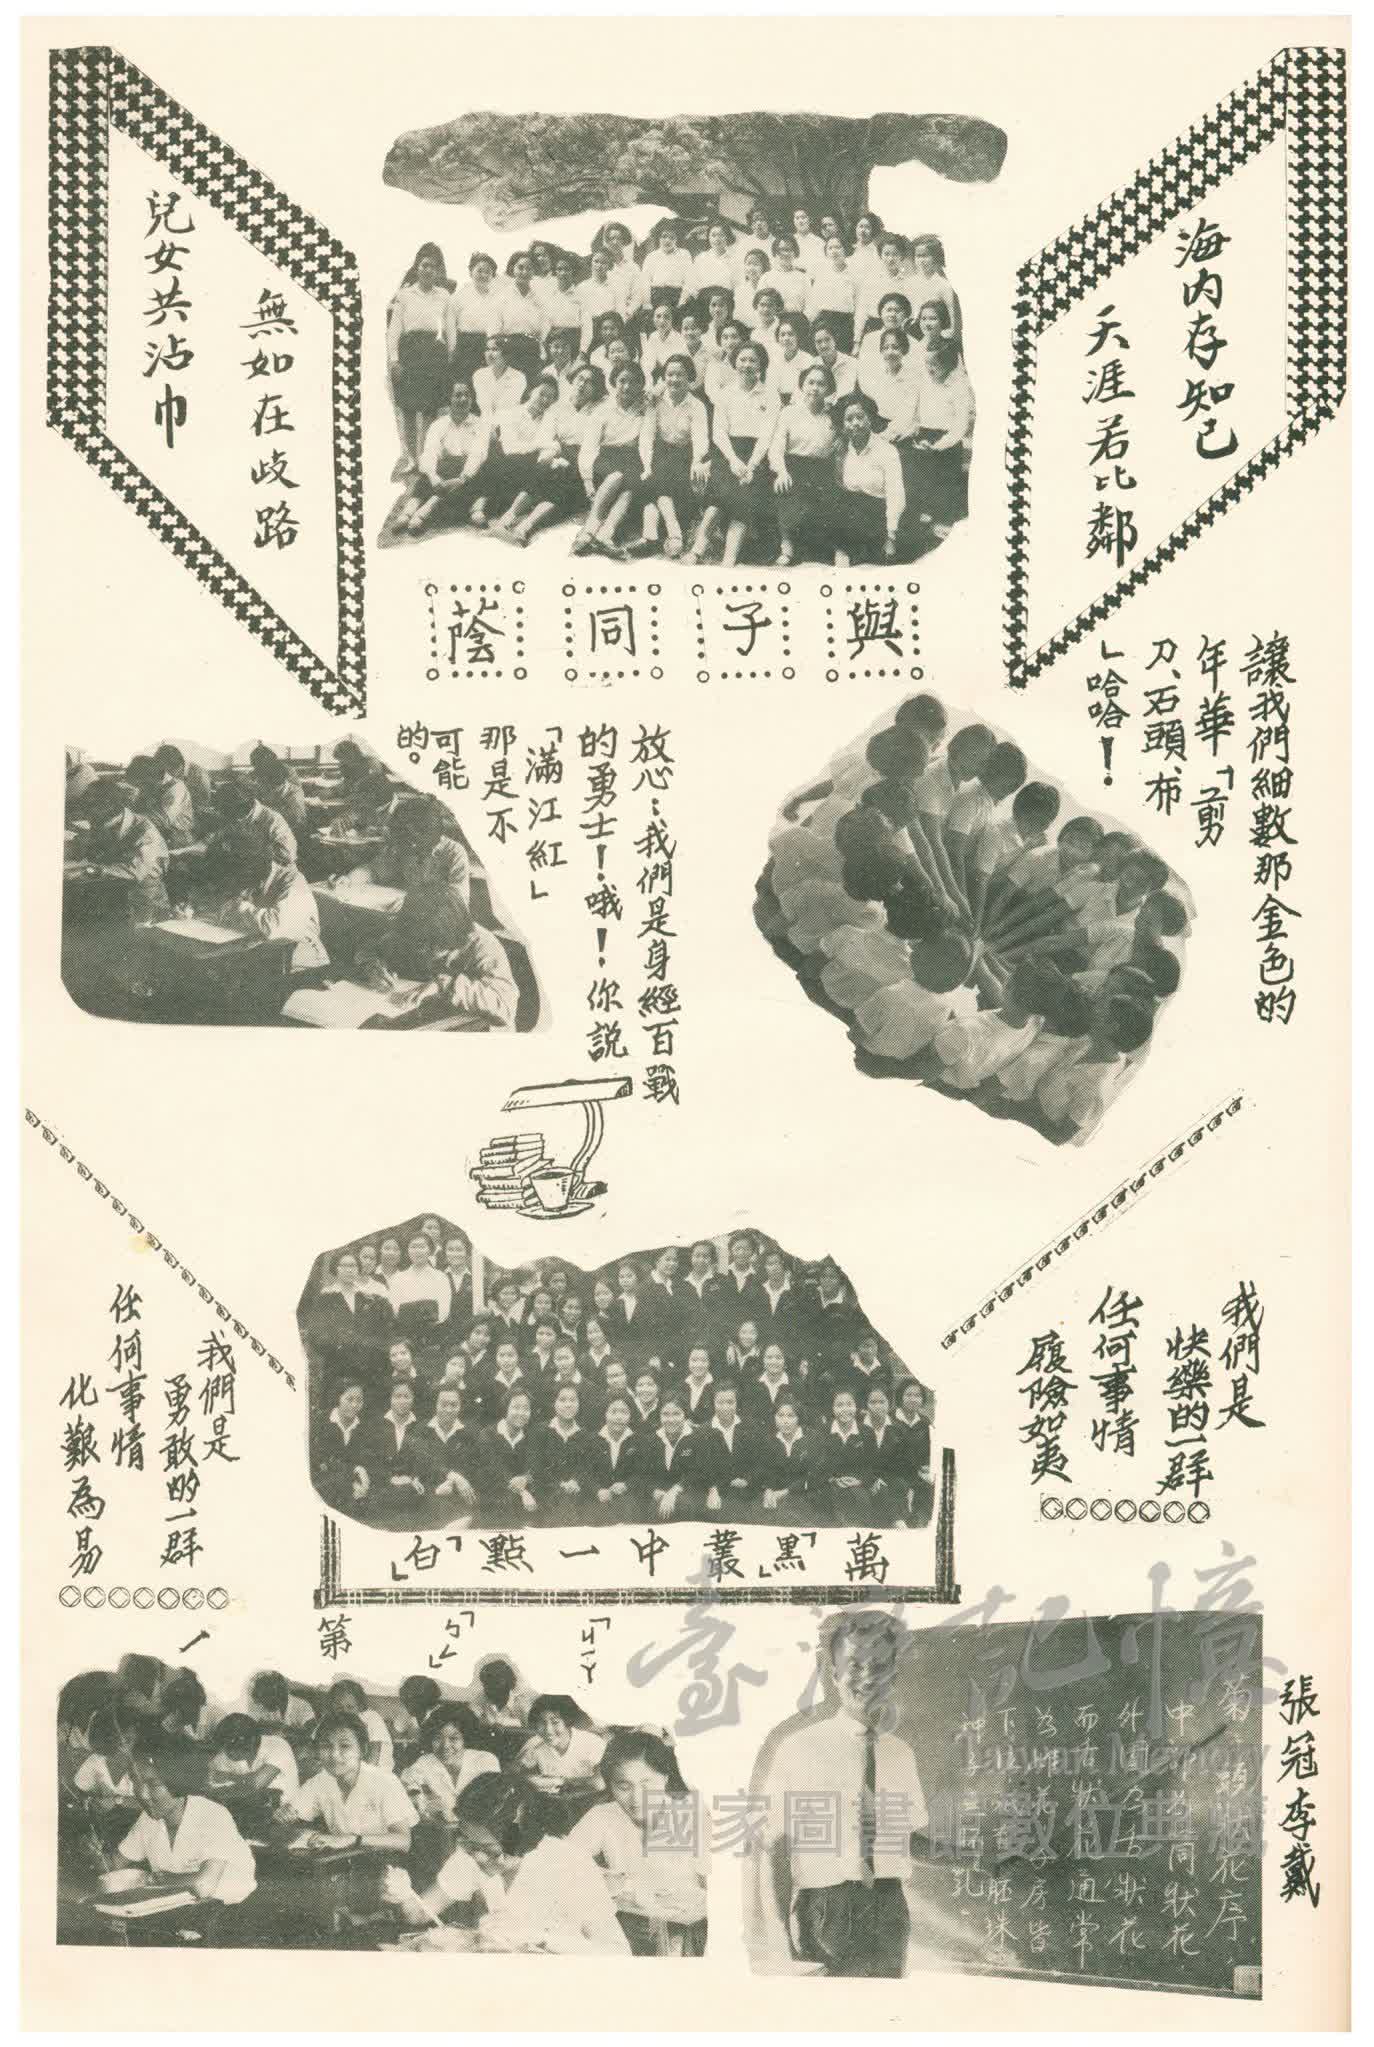 海內存知己
天涯若比鄰
無如在歧路
兒女共沾巾
與子同蔭
讓我們細數那金色的
年華「剪
刀、石頭、布
」哈哈！
放心：我們是身經百戰
的勇士！哦！你說
「滿江紅」
那是不
可能
的。
我們是
快樂的一群
任何事情
履險如夷
我們是
勇敢的一群
任何事情
化艱為易
萬「黑」叢中一點「白」
「ㄐㄧㄚ」
「ㄅㄟ」
第
一
張冠李戴
中
同狀花
外圍乃舌狀花
而舌狀花通常
為雌花子房皆
下位
胚珠
臺灣記憶
Taiwan Memory
國家圖書館數位典藏